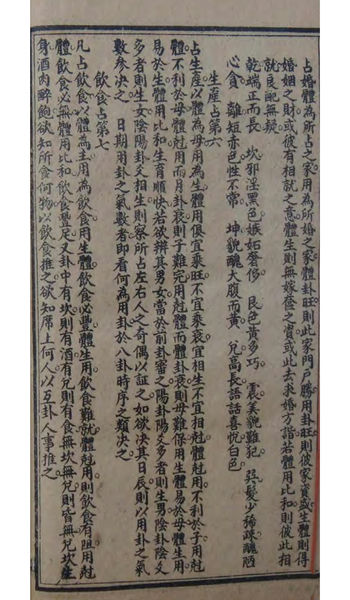 占婚體為所占之家用為所婚之家體卦旺則此家門戶勝用卦旺則彼家資盛生體則得
婚姻之財或彼有相就之意體生則無嫁奩之資或此去求婚方諧若體用比和則彼此相
就良配無疑
乾端正而長 坎邪淫黑色嫉妬奢侈 艮色黃多巧 震美貌難犯 巽髮少稀疎醜陋
心貪 離短赤色性不常 坤貌醜大腹而黃 兌高長語話喜悅白色
生產占第六
占生產以體為母用為生體用俱宜乘旺不宜乘衰宜相生不宜相尅體尅用不利於子用尅
體不利於母體尅用而用卦衰則子難完用尅體而體卦衰則母難保用生體易於母體生用
易於生體用比和生育順快若欲辨其男女當於前卦審之陽卦陽爻多者則生男陰卦陰爻
多者則生女陰陽卦爻相生則察所占左右人之奇偶以証之如欲決其日辰則以用卦之氣
數參決之 日期用卦之氣數者即看何為用卦於八卦時序之類決之
飲食占第七
凡占飲食以體為主用為飲食用生體飲食必豐體生用飲食難就體尅用則飲食有阻用尅
體飲食必無體用比和飲食豐足又卦中有坎則有酒有兌則有食無坎無兌則皆無兌坎生
身酒肉醉飽欲知所食何物以飲食推之欲知席上何人以互卦人事推之